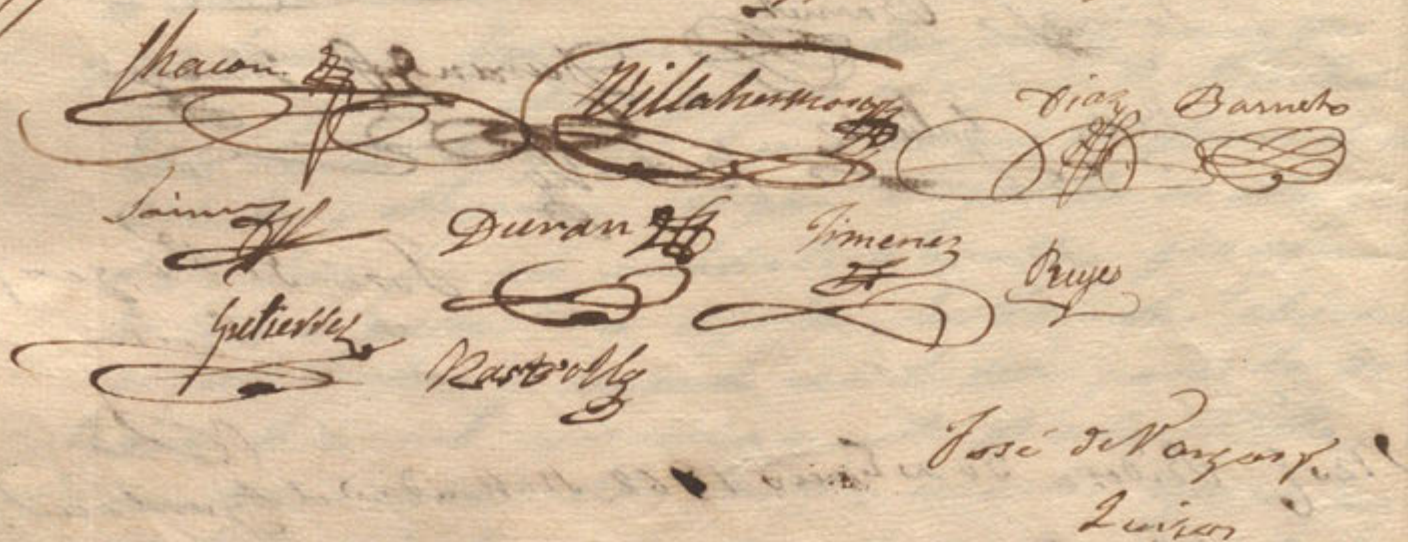 Chacon Villahermosa Diaz Barneto
Duran Jimenez Reyes
Gutierrez Rastrollo
José de Vargas y